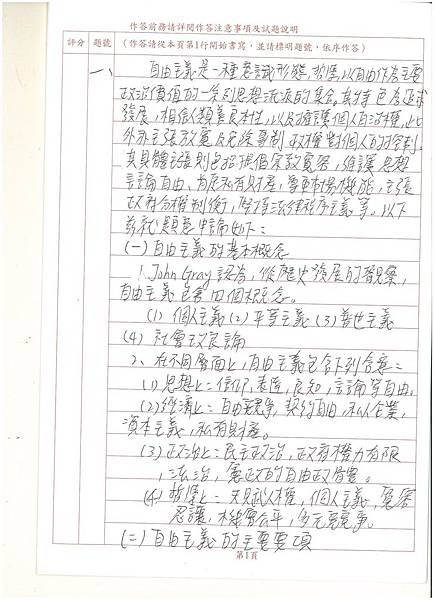 作答前務請詳閱作答注意事項及試題說明
評分 題號 (作答請從本頁第1行開始書寫,並請標明題號,依序作答)
一、 自由主義是一種意識形態、哲學,以自由作為主要
政治價值的一系列思想流派的集合,其特色為追求
發展,相信人類善良本性,以及擁護個人自治權,此
外亦主張放寬及免除專制政權對個人的控制。
其具體主張則包括提倡寬放寬容,維護思想
言論自由、有限私有財產,尊重市場機能,主張
政府分權制衡,堅持法律程序主義等。以下
茲就題意申論如下:
(一)自由主義的基本概念
1. John Gray認為,從歷史發展的觀察,
自由主義包含四個概念。
(1) 個人主義 (2) 平等主義 (3) 普世主義
(4) 社會改良論
2、在不同層面上,自由主義包含下列含意:
(1) 思想上:信仰,良知,言論等自由。
(2) 經濟上:自由競爭,契約自由,私人企業,
資本主義,私有財產。
(3) 政治上:民主政治,政府權力有限
,法治,憲政的自由政體。
(4) 哲學上:天賦人權,個人主義,寬容
忍讓,機會公平,多元競爭。
(二)自由主義的主要要項
第1頁